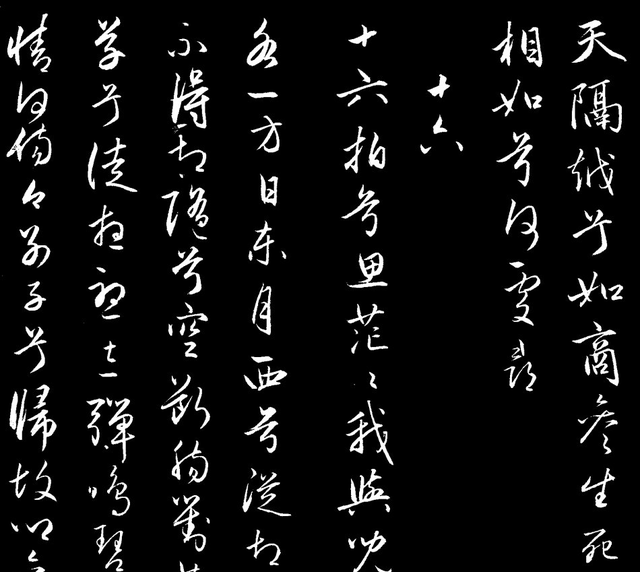 天隔越兮如商參生死
相知兮何處尋
十六
十六拍兮思茫〻我與兒
各一方日東月西兮徒相
不得相隨兮空斷腸對
草兮徒想憂忘彈鳴琴
情何傷今別子兮歸故鄉